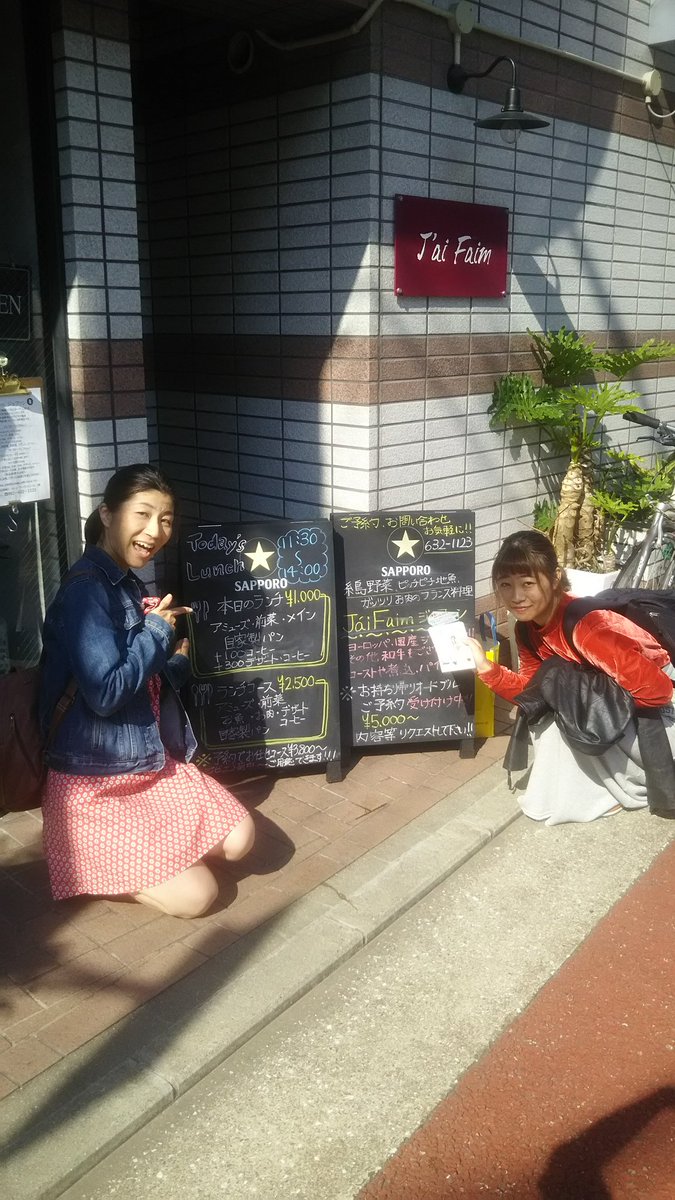 J'ai Faim
EN
Today's
Lunch
11:30
14:00
SAPPORO
本日のランチ ¥1,000
アミューズ・前菜・メイン
自家製パン
+100コーヒー
+300デザート・コーヒー
ランチコース ¥2,500
アミューズ・前菜
お魚・お肉・デザート
コーヒー
自家製パン
ご予約、お問い合わせ
お気軽に!!
632-1123
SAPPORO
糸島野菜 ピチピチ地魚
ガッツリお肉のフランス料理
J'ai Faim
ヨーロッパ・国産
その他、和牛
コーストや煮込、パイ
※お持ち帰りオードブル
ご予約 受け付け中
¥5,000〜
内容等リクエストして下さい!!